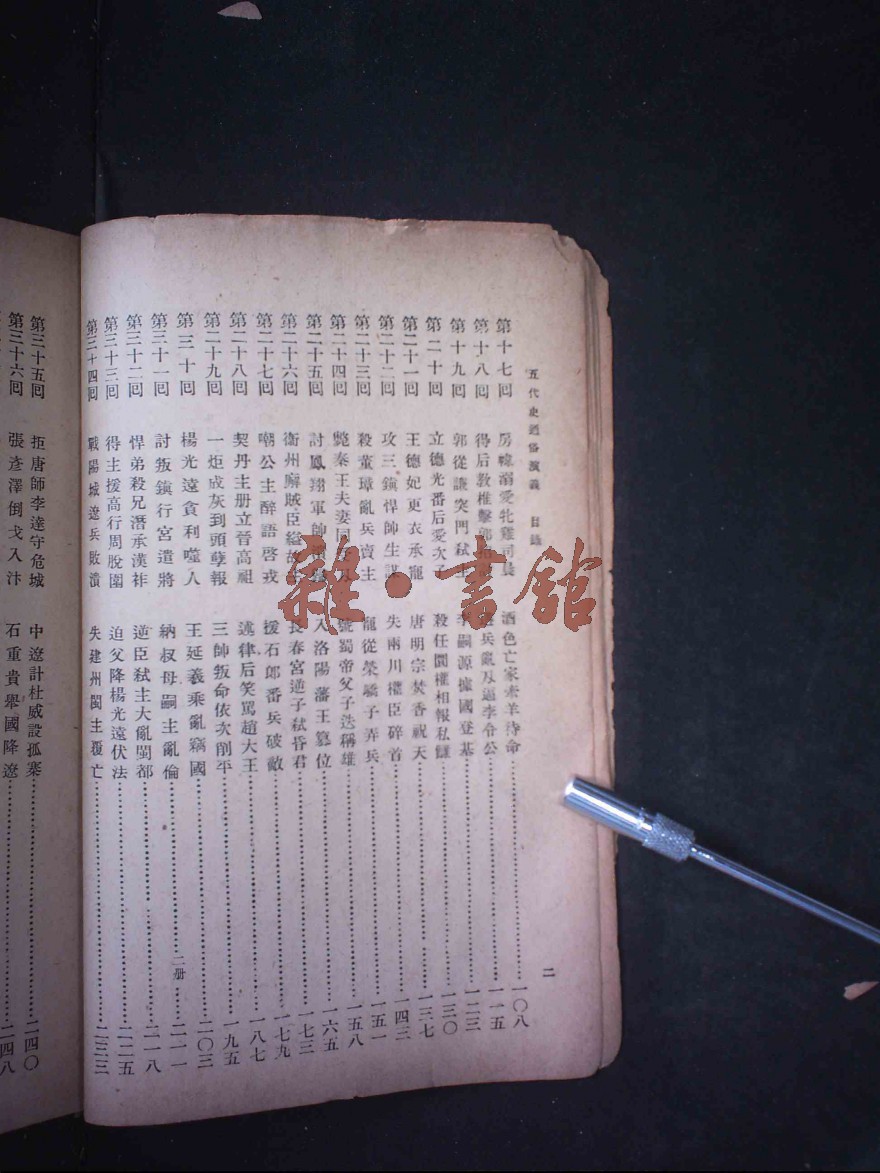 五代史通俗演義 目錄
第十七回 房幃溺愛牝雞司晨 酒色亡家牽羊待命 一〇八
第十八回 得后敎椎擊郭招 兵亂反逼李令公 一一五
第十九回 郭從謙突門弒主 李嗣源據國登基 一二三
第二十回 立德光番后愛次子 殺任圜權相報私讎 一三〇
第二十一回 王德妃更衣承寵 唐明宗焚香祝天 一三七
第二十二回 攻三鎭悍帥生謀 失兩川權臣碎首 一四三
第二十三回 殺董璋亂兵賣主 寵從榮驕子弄兵 一五一
第二十四回 斃秦王夫妻同 號蜀帝父子迭稱雄 一五八
第二十五回 討鳳翔軍帥潰 入洛陽藩王篡位 一六五
第二十六回 衛州廨賊臣縊故主 長春宮逆子弒昏君 一七三
第二十七回 嘲公主醉語啓戎 援石郎番兵破敵 一七九
第二十八回 契丹主册立晉高祖 述律后笑罵趙大王 一八七
第二十九回 一炬成灰到頭孽報 三帥叛命依次削平 一九五
第三十回 楊光遠貪利噬人 王延羲乘亂竊國 二〇三
第三十一回 討叛鎭行宮遣將 納叔母嗣主亂倫 二册 二一一
第三十二回 悍弟殺兄潛承漢祚 逆臣弒主大亂閩都 二一八
第三十三回 得主援高行周脫圍 迫父降楊光遠伏法 二二五
第三十四回 戰陽城遼兵敗潰 失建州閩主覆亡 二三三
二
第三十五回 拒唐師李達守危城 中遼計杜威設孤寨 二四〇
第三十六回 張彥澤倒戈入汴 石重貴舉國降遼 二四八
雜·書館